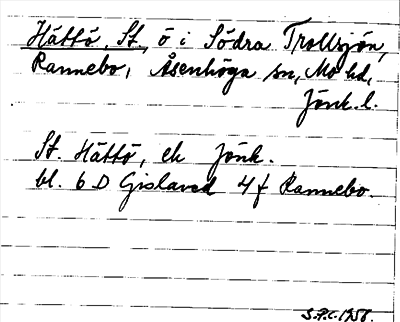 Håttö, St., ö i Södra Trollsjön,
Rannebo, Åsenhöga sn, Mo hd,
Jönk. l.
St. Håttö, ek Jönk.
bl. 6 D Gislaved 4 f Rannebo.
S.P.C. 1958.